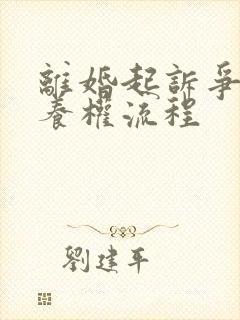 離婚起訴爭
養權流程
劉建平